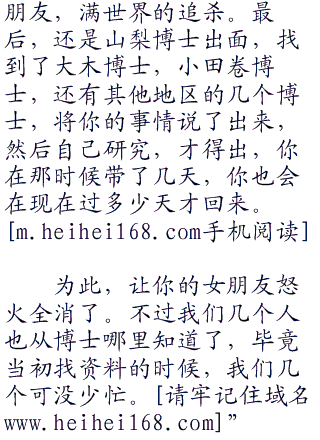 朋友，满世界的追杀。最
后，还是山梨博士出面，找
到了大木博士，小田卷博
士，还有其他地区的几个博
士，将你的事情说了出来，
然后自己研究，才得出，你
在那时候带了几天，你也会
在现在过多少天才回来。
[m.heihei168.com手机阅读]
为此，让你的女朋友怒
火全消了。不过我们几个人
也从博士哪里知道了，毕竟
当初找资料的时候，我们几
个可没少忙。[请牢记住域名
www.heihei168.com]”